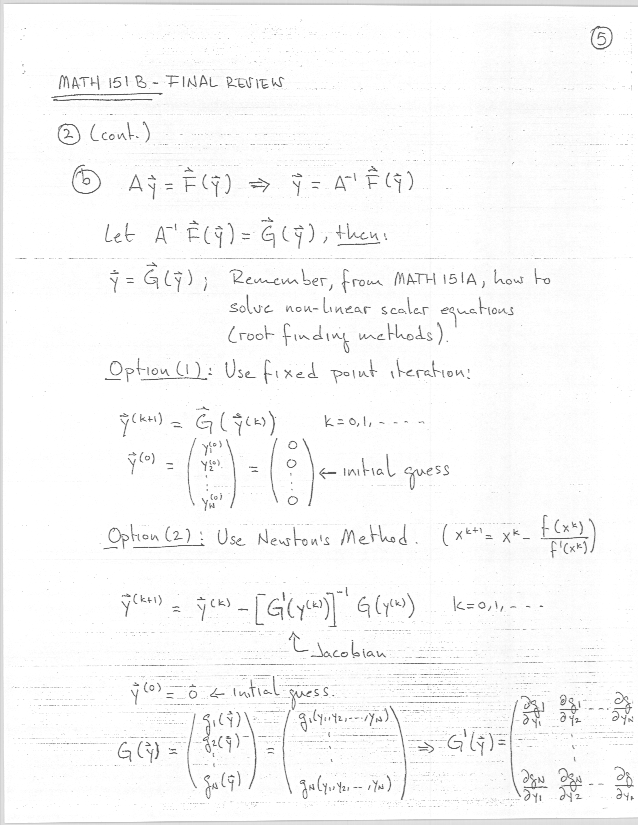 ⑤
MATH 151 B - FINAL REVIEW
② (cont.)
ⓑ A y⃗ = F⃗(y⃗) ⇒ y⃗ = A⁻¹ F⃗(y⃗)
Let A⁻¹ F⃗(y⃗) = G⃗(y⃗), then:
y⃗ = G⃗(y⃗); Remember, from MATH 151A, how to
solve non-linear scalar equations
(root finding methods).
Option (1): Use fixed point iteration:
y⃗^(k+1) = G⃗(y⃗^(k)) k = 0,1, - - - -
y⃗^(0) = (y₁^(0) y₂^(0) ⋮ y_N^(0)) = (0 0 ⋮ 0) ← initial guess
Option (2): Use Newton's Method. (x^(k+1) = x^k - f(x^k)/f'(x^k))
y⃗^(k+1) = y⃗^(k) - [G'(y^(k))]⁻¹ G(y^(k)) k = 0,1, - - -
↑ Jacobian
y⃗^(0) = 0⃗ ← initial guess.
G(y⃗) = (g₁(y⃗) g₂(y⃗) ⋮ g_N(y⃗)) = (g₁(y₁,y₂,---,y_N) ⋮ g_N(y₁,y₂,--,y_N)) ⇒ G'(y⃗) = (∂g₁/∂y₁ ∂g₁/∂y₂ -- ∂g/∂y_N ⋮ ∂g_N/∂y₁ ∂g_N/∂y₂ -- ∂g/∂y_N